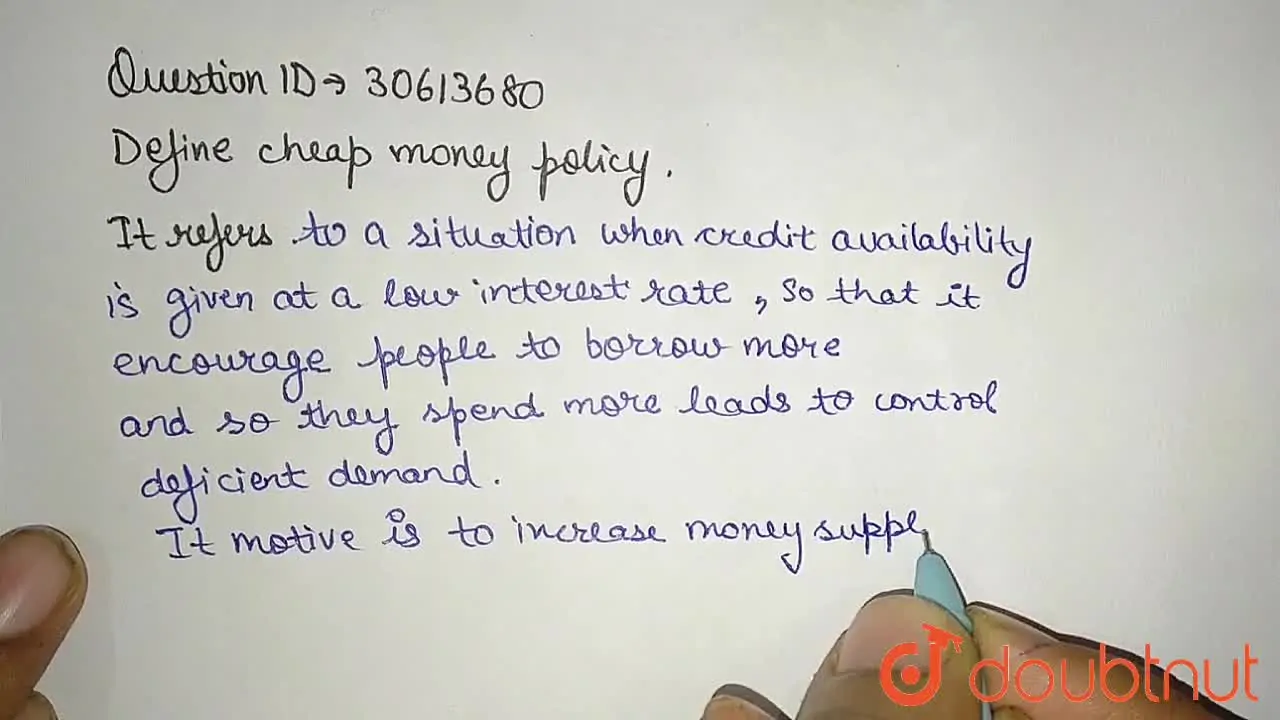 Question ID → 30613680
Define cheap money policy.
It refers to a situation when credit availability
is given at a low interest rate, so that it
encourage people to borrow more
and so they spend more leads to control
deficient demand.
It motive is to increase money suppl
doubtnut